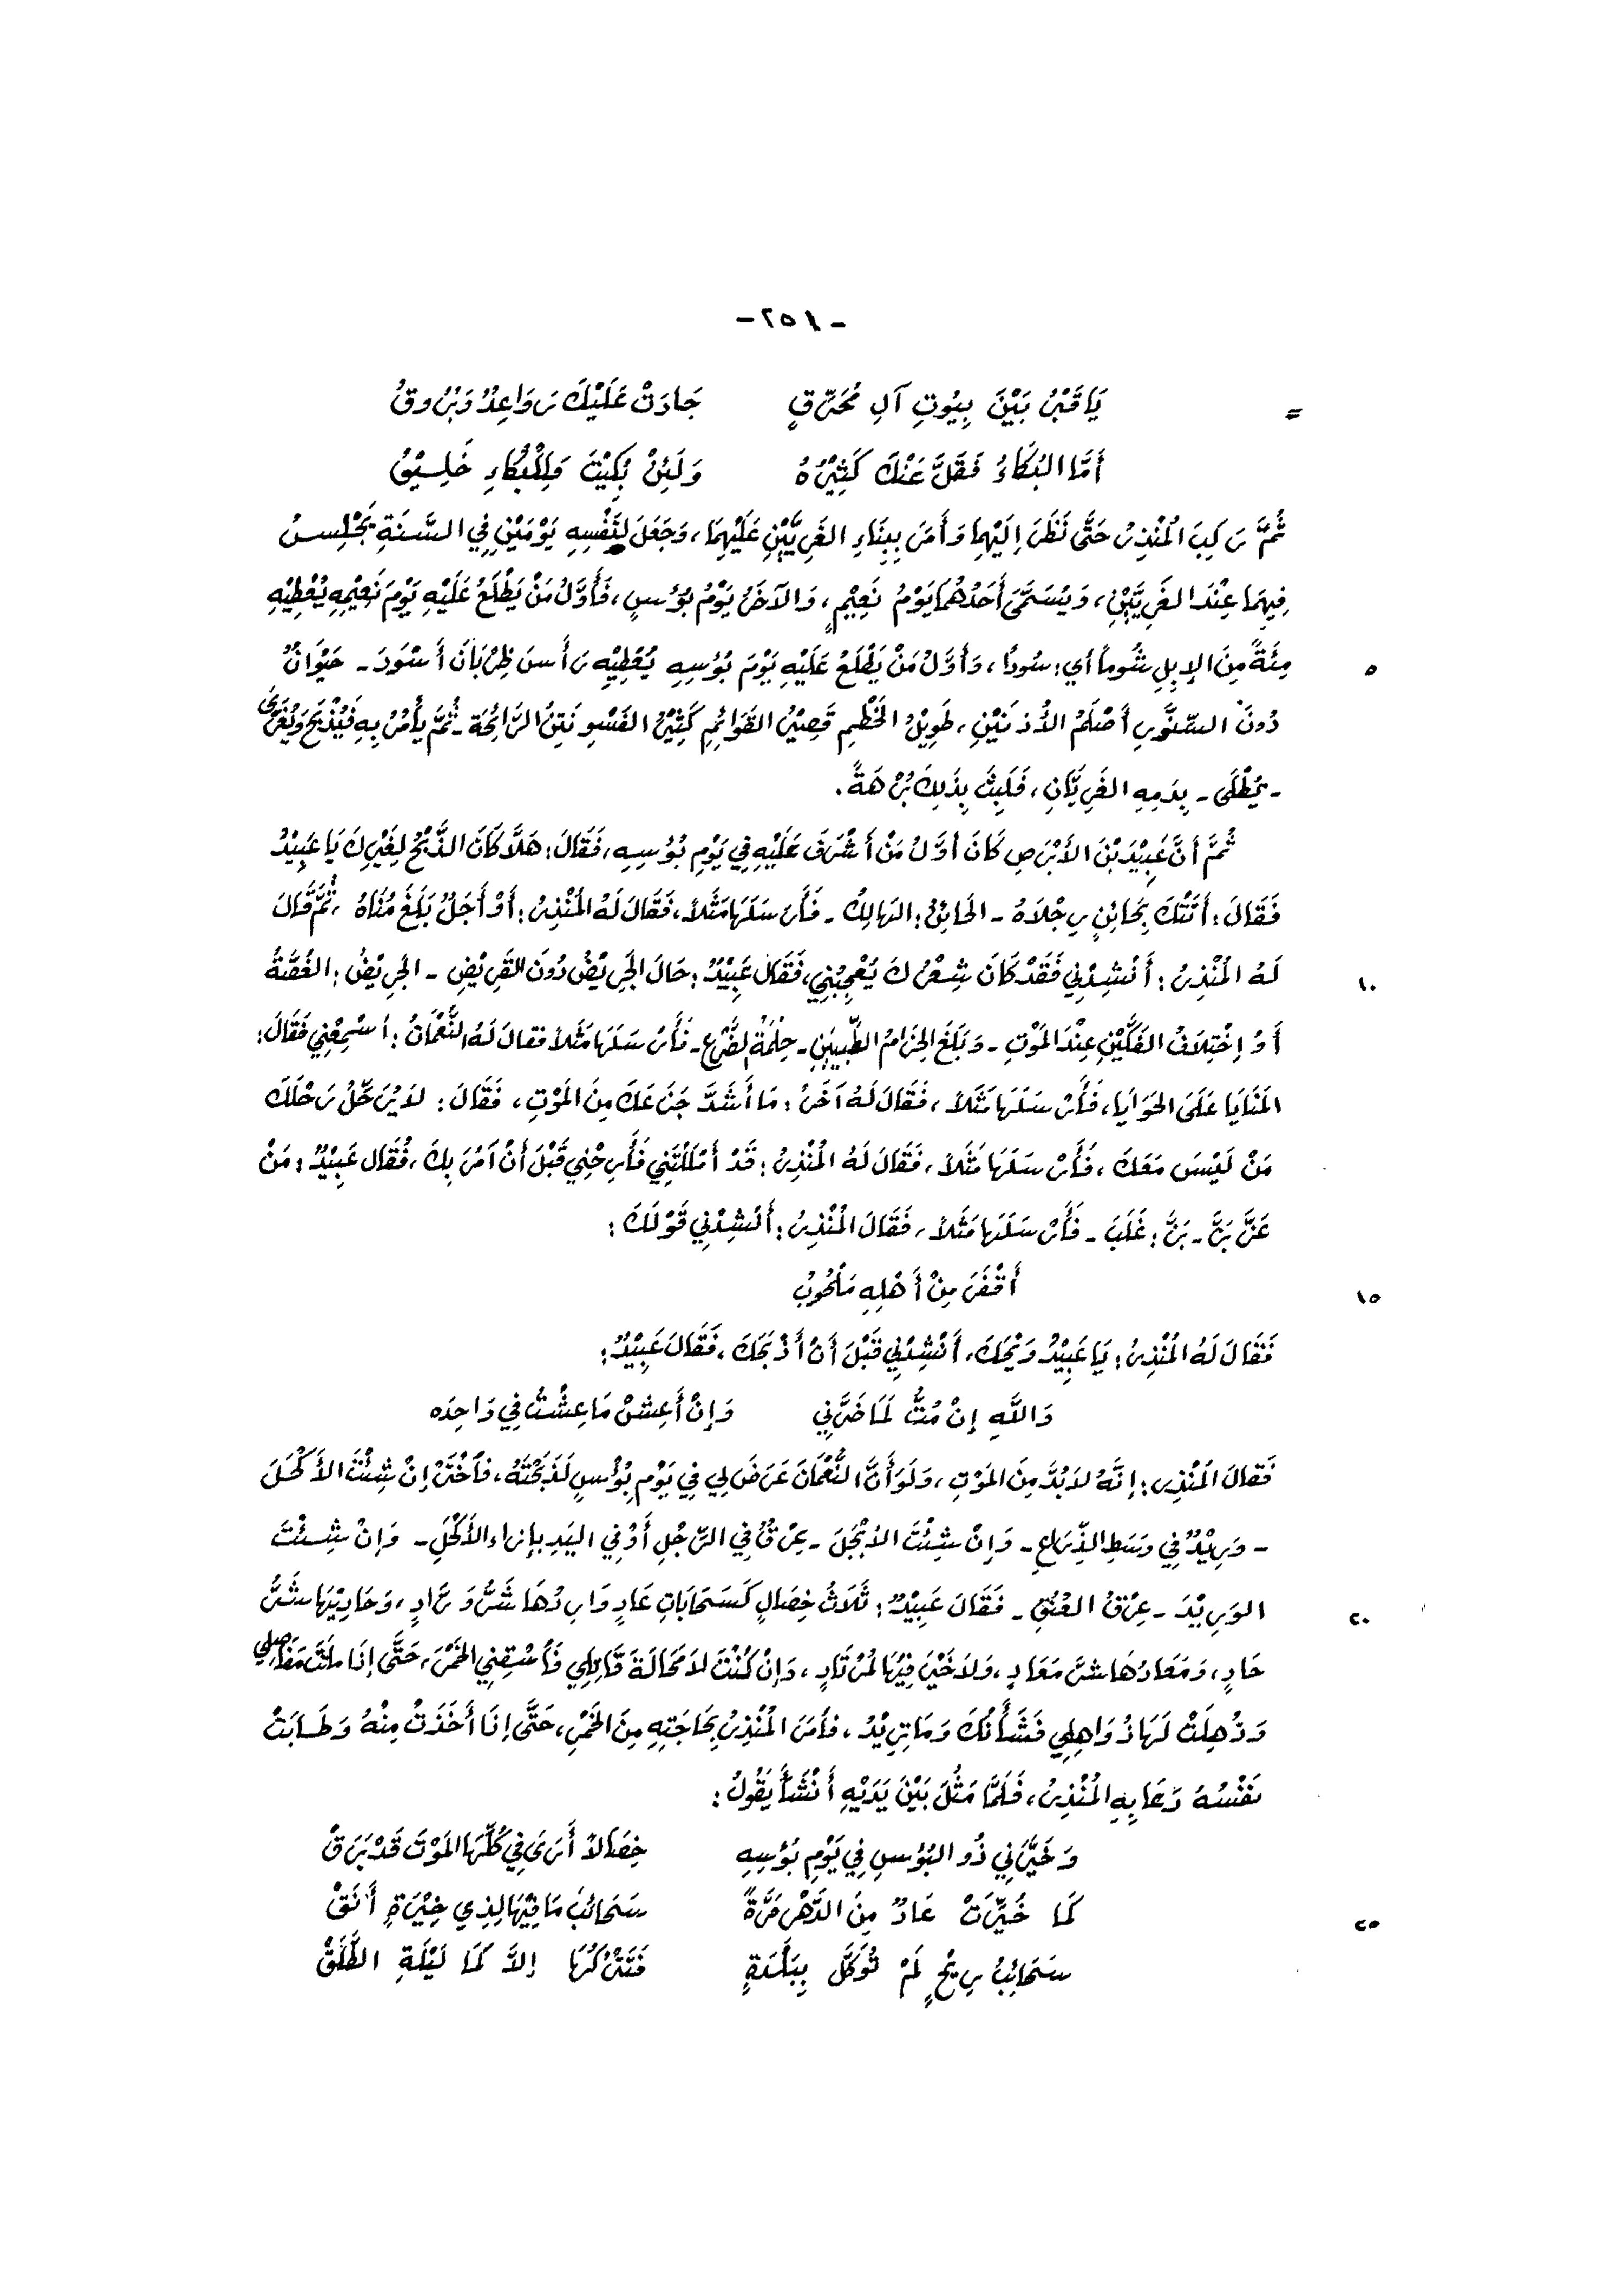 - ٢٥٨ -
= يَا قَبْرُ بَيْنَ بِيُوتِ آلِ مُحَرِّقٍ جَادَتْ عَلَيْكَ رَوَاعِدٌ وَبُرُوقُ
أَمَّا البُكَاءُ فَقَلَّ عَنْكَ كَثِيْرُهُ وَلَئِنْ بُكِيْتَ فَلِلْبُكَاءِ خَلِيْقُ
ثُمَّ رَكِبَ المُنْذِرُ حَتَّى نَظَرَ إِلَيْهِمَا وَأَمَرَ بِبِنَاءِ الغَرِيَّيْنِ عَلَيْهِمَا، وَجَعَلَ لِنَفْسِهِ يَوْمَيْنِ فِي السَّنَةِ يَجْلِسُ
فِيهِمَا عِنْدَ الغَرِيَّيْنِ، وَيُسَمَّى أَحَدُهُمَا يَوْمُ نَعِيْمٍ، وَالآخَرُ يَوْمُ بُؤْسٍ، فَأَوَّلُ مَنْ يَطْلَعُ عَلَيْهِ يَوْمَ نَعِيْمِهِ يُعْطِيْهِ
٥ مِئَةً مِنَ الإِبِلِ شُوماً أي: سُوداً، وَأَوَّلُ مَنْ يَطْلَعُ عَلَيْهِ يَوْمَ بُؤْسِهِ يُعْطِيْهِ رَأْسَ ظِرْبَانَ أَسْوَدَ - حَيَوَانٌ
دُونَ السِّنَّوْرِ أَصْلَمُ الأُذُنَيْنِ، طَوِيْلُ الخَطْمِ قَصِيْرُ القَوَائِمِ كَثِيْرُ الفَسْوِ نَتِنُ الرَّائِحَةِ - ثُمَّ يَأْمُرُ بِهِ فَيُذْبَحُ وَيُغَرَّى
- يُطْلَى - بِدَمِهِ الغَرِيَّانِ، فَلَبِثَ بِذَلِكَ بُرْهَةً.
ثُمَّ أَنَّ عَبِيْدَ بْنَ الأَبْرَصِ كَانَ أَوَّلُ مَنْ أَشْرَفَ عَلَيْهِ فِي يَوْمِ بُؤْسِهِ، فَقَالَ: هَلاَّ كَانَ الذَّبْحُ لِغَيْرِكَ يَا عَبِيْدُ
فَقَالَ: أَتَتْكَ بِحَائِنٍ رِجْلاَهُ - الحَائِنُ: الهَالِكُ - فَأَرْسَلَهَا مَثَلاً، فَقَالَ لَهُ المُنْذِرُ: أَوْ أَجَلٌ بَلَغَ مُنَاهُ، ثُمَّ قَالَ
١٠ لَهُ المُنْذِرُ: أَنْشِدْنِي فَقَدْ كَانَ شِعْرُكَ يُعْجِبُنِي، فَقَالَ عَبِيْدٌ: حَالَ الجَرِيْضُ دُونَ القَرِيْضِ - الجَرِيْضُ: الغُصَّةُ
أَوْ إخْتِلاَفُ الفَكَّيْنِ عِنْدَ المَوْتِ - وَبَلَغَ الحِزَامُ الطُّبيَيْنِ - حِلْمَةُ الضَّرْعِ - فَأَرْسَلَهَا مَثَلاً فقالَ لَهُ النُّعْمَانُ: أَسْمِعْنِي فَقَالَ:
المَنَايَا عَلَى الحَوَايَا، فَأَرْسَلَهَا مَثَلاً، فَقَالَ لَهُ آخَرُ: مَا أَشَدَّ جَزَعَكَ مِنَ المَوْتِ، فَقَالَ: لاَ يُرَحِّلُ رَحْلَكَ
مَنْ لَيْسَ مَعَكَ، فَأَرْسَلَهَا مَثَلاً، فَقَالَ لَهُ المُنْذِرُ: قَدْ أَمْلَلْتَنِي فَأَرِحْنِي قَبْلَ أَنْ آمُرَ بِكَ، فَقَالَ عَبِيْدٌ: مَنْ
عَزَّ بَزَّ - بَزَّ: غَلَبَ - فَأَرْسَلَهَا مَثَلاً، فَقَالَ المُنْذِرُ: أَنْشِدْنِي قَوْلَكَ:
١٥ أَقْفَرَ مِنْ أَهْلِهِ مَلْحُوبُ
فَقَالَ لَهُ المُنْذِرُ: يَا عَبِيْدُ وَيْحَكَ، أَنْشِدْنِي قَبْلَ أَنْ أَذْبَحَكَ، فَقَالَ عَبِيْدٌ:
وَاللَّهِ إِنْ مُتُّ لَمَا ضَرَّنِي وَإِنْ أَعِشْ مَا عِشْتُ فِي وَاحِدَه
فَقَالَ المُنْذِرُ: إِنَّهُ لاَبُدَّ مِنَ المَوْتِ، وَلَوْ أَنَّ النُّعْمَانَ عَرَضَ لِي فِي يَوْمِ بُؤْسٍ لَذَبَحْتُهُ، فاَخْتَرْ إِنْ شِئْتَ الأَكْحَلَ
- وَرِيْدٌ فِي وَسَطِ الذِّرَاعِ - وَإِنْ شِئْتَ الأَبْجَلَ - عِرْقٌ فِي الرِّجْلِ أَوْ فِي اليَدِ بِإِزاءِ الأَكْحَلِ - وَإِنْ شِئْتَ
٢٠ الوَرِيْدَ - عِرْقُ العُنُقِ - فَقَالَ عَبِيْدٌ: ثَلاَثُ خِصَالٍ كَسَحَابَاتِ عَادٍ وَارِدُهَا شَرُّ وَرَّادٍ، وَحَادِيْهَا شَرُّ
حَادٍ، وَمَعَادُهَا شَرُّ مَعَادٍ، وَلاَ خَيْرَ فِيْهَا لِمُرْتَادٍ، وَإِنْ كُنْتَ لاَ مَحَالَةَ قَاتِلِي فَأَسْقِنِي الخَمْرَ، حَتَّى إِذَا مَاتَتْ مَفَاصِلِي
وَذُهِلَتْ لَهَا ذُوَاهِلِي فَشَأْنُكَ وَمَا تِرِيْدُ، فَأَمَرَ المُنْذِرُ بِحَاجَتِهِ مِنَ الخَمْرِ، حَتَّى إِذَا أَخَذَتْ مِنْهُ وَطَابَتْ
نَفْسُهُ دَعَا بِهِ المُنْذِرُ، فَلَمَّا مَثُلَ بَيْنَ يَدَيْهِ أَنْشَأَ يَقُولُ:
وَخَيَّرَنِي ذُو البُؤْسِ فِي يَوْمِ بُؤْسِهِ خِصَالاً أَرَى فِي كُلِّهَا المَوْتَ قَدْ بَرَقْ
٢٥ كَمَا خُيِّرَتْ عَادٌ مِنَ الدَّهْرِ مَرَّةً سَحَائِبَ مَا فِيْهَا لِذِي خِيْرَةٍ أَنَقْ
سَحَائِبُ رِيْحٍ لَمْ تُوَكَّلْ بِبَلْدَةٍ فَتَتْرُكَهَا إِلاَّ كَمَا لَيْلَةِ الطَّلَقْ